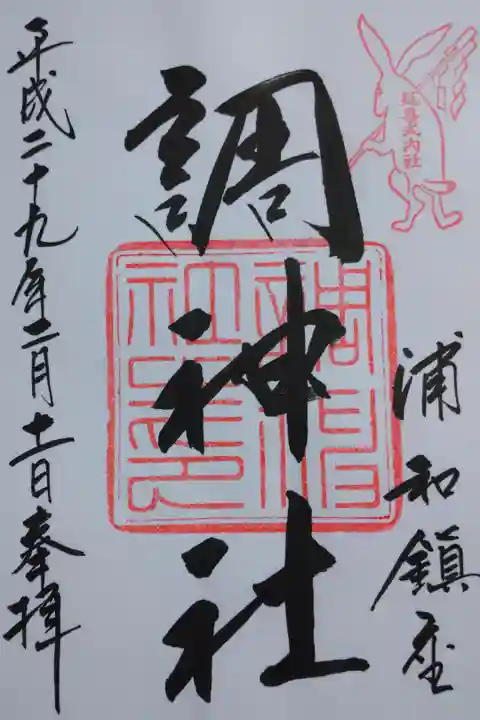 延喜式内社
浦和鎮座
調神社
調神社之印
平成二十九年二月十一日奉拝